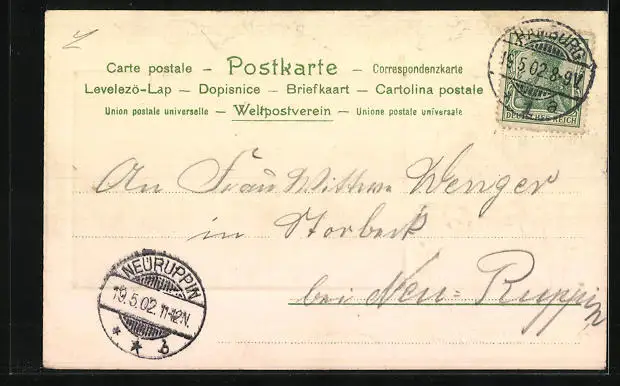 Carte postale – Postkarte – Correspondenzkarte
Levelezö-Lap – Dopisnice – Briefkaart – Cartolina postale
Union postale universelle – Weltpostverein – Unione postale universale
HAMBURG
19.5.02.8-9V.
a
DEUTSCHES REICH
An Frau Wittwe Wenger
in Storbeck
bei Neu-Ruppin
NEURUPPIN
19.5.02.11-12N.
* * b